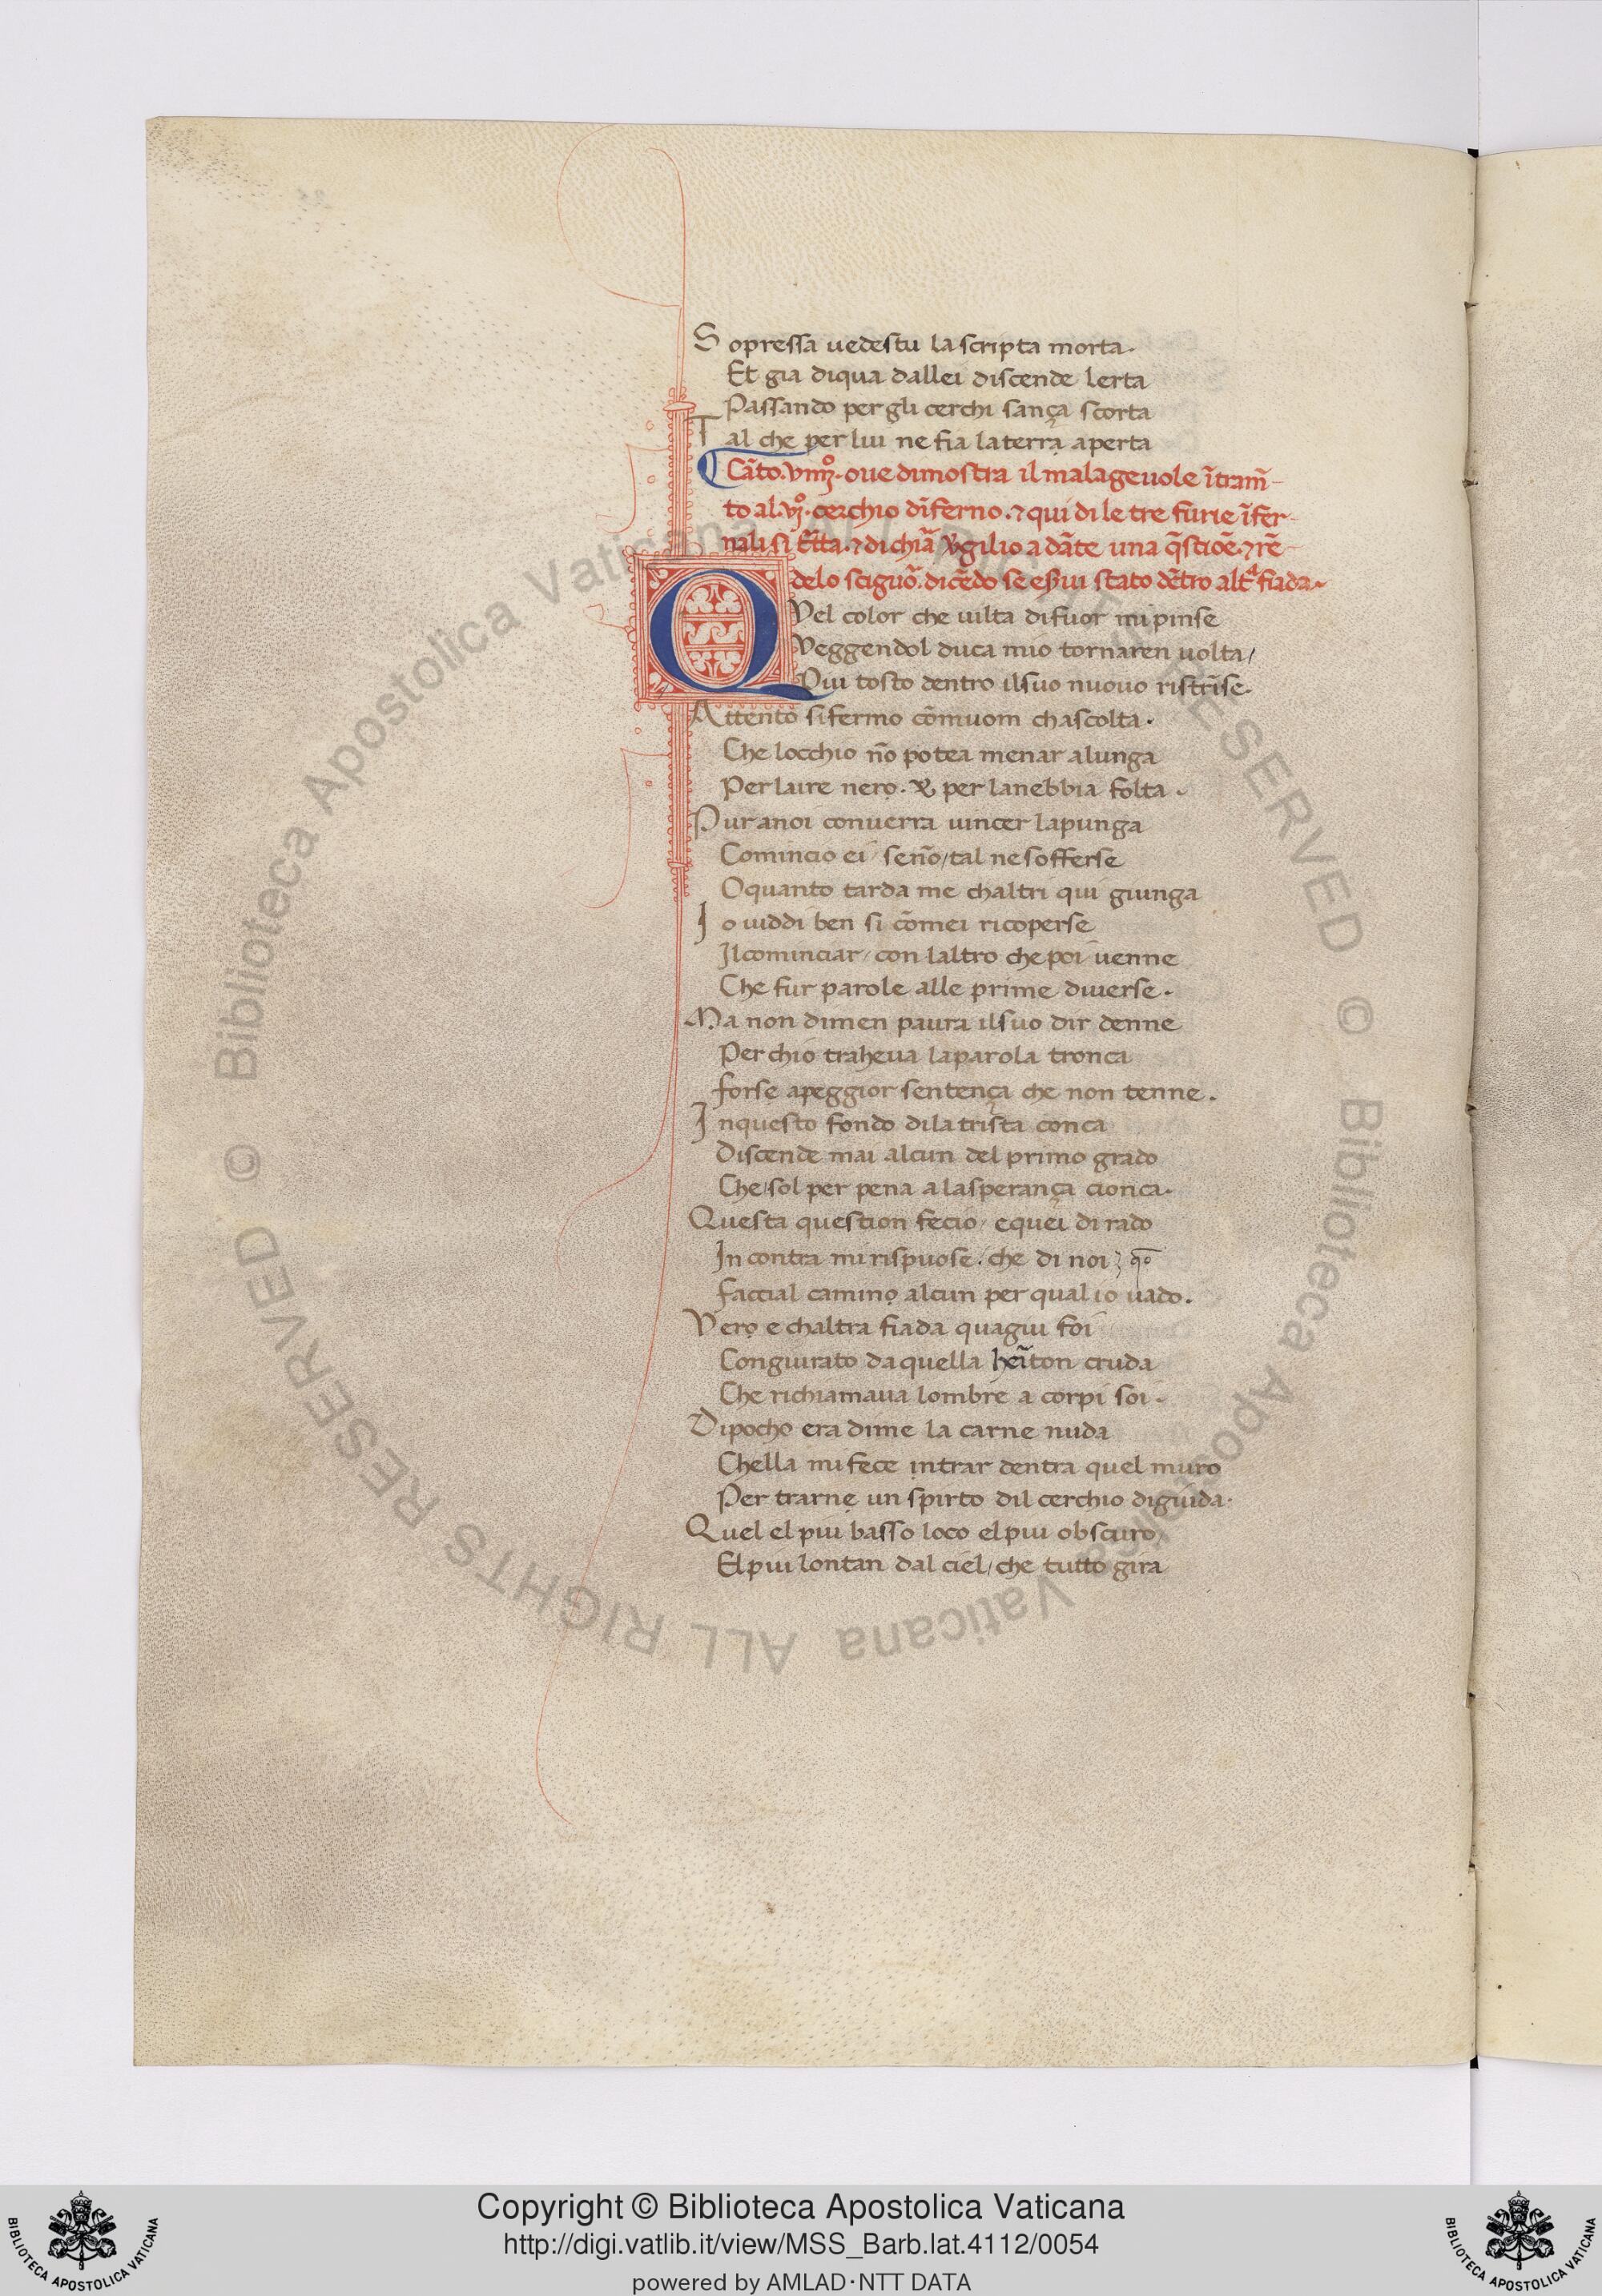 Sopressa uedestu la scripta morta.
Et gia diqua dallei discende lerta
Passando per gli cerchi sança scorta
Tal che per lui ne fia la terra aperta
Cãto. viiijº. oue dimostra il malageuole ĩtram̃
to al. vjº. cerchio dĩferno. ⁊ qui di le tre furie ĩfer
nali si
delo . dicẽdo se essiui stato dẽtro fiada.
QVel color che uilta difuor mi pinse
Veggendol duca mio tornaren uolta/
Piu tosto dentro ilsuo nuouo ristrĩse.
Attento si fermo cõmuom chascolta.
Che locchio nõ potea menar alunga
Per laire nero. ⁊ per lanebbia folta.
Pur anoi conuerra uincer lapunga
Comincio ei/ se nõ/ tal ne sofferse
Oquanto tarda me chaltri qui giunga
Io uiddi ben si cõmei ricoperse
Ilcominciar/ con laltro che poi uenne
Che fur parole alle prime diuerse.
Ma non dimen paura ilsuo dir denne
Per chio traheua laparola tronca
forse apeggior sentença che non tenne.
Inquesto fondo dila trista conca
Discende mai alcun del primo grado
Che/ sol per pena a lasperança cionca.
Questa question fecio/ equei di rado
In contra mi rispuose/ che di noi
Faccial camino alcun per qual io uado.
Vero e chaltra fiada quagiu foi
Congiurato da quella heiton cruda
Che richiamaua lombre a corpi soi.
Dipocho era dime la carne nuda
Chella mi fece intrar dentra quel muro
Per trarne un spirto dil cerchio digiuda.
Quel el piu basso loco el piu obscuro
El piu lontan dal ciel/ che tutto gira
© Biblioteca Apostolica Vaticana ALL RIGHTS RESERVED © Biblioteca Apostolica Vaticana ALL RIGHTS RESERVED
Copyright © Biblioteca Apostolica Vaticana
http://digi.vatlib.it/view/MSS_Barb.lat.4112/0054
powered by AMLAD·NTT DATA
BIBLIOTECA APOSTOLICA VATICANA
BIBLIOTECA APOSTOLICA VATICANA